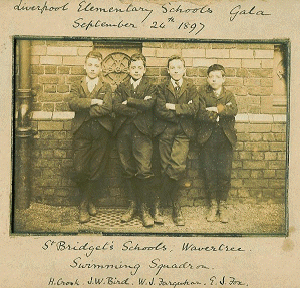 Liverpool Elementary Schools Gala
September 24th 1897
St Bridget's Schools, Wavertree.
Swimming Squadron.
H. Crosk. J. W. Bird. W. J. Farquhar. E. J. Fox.